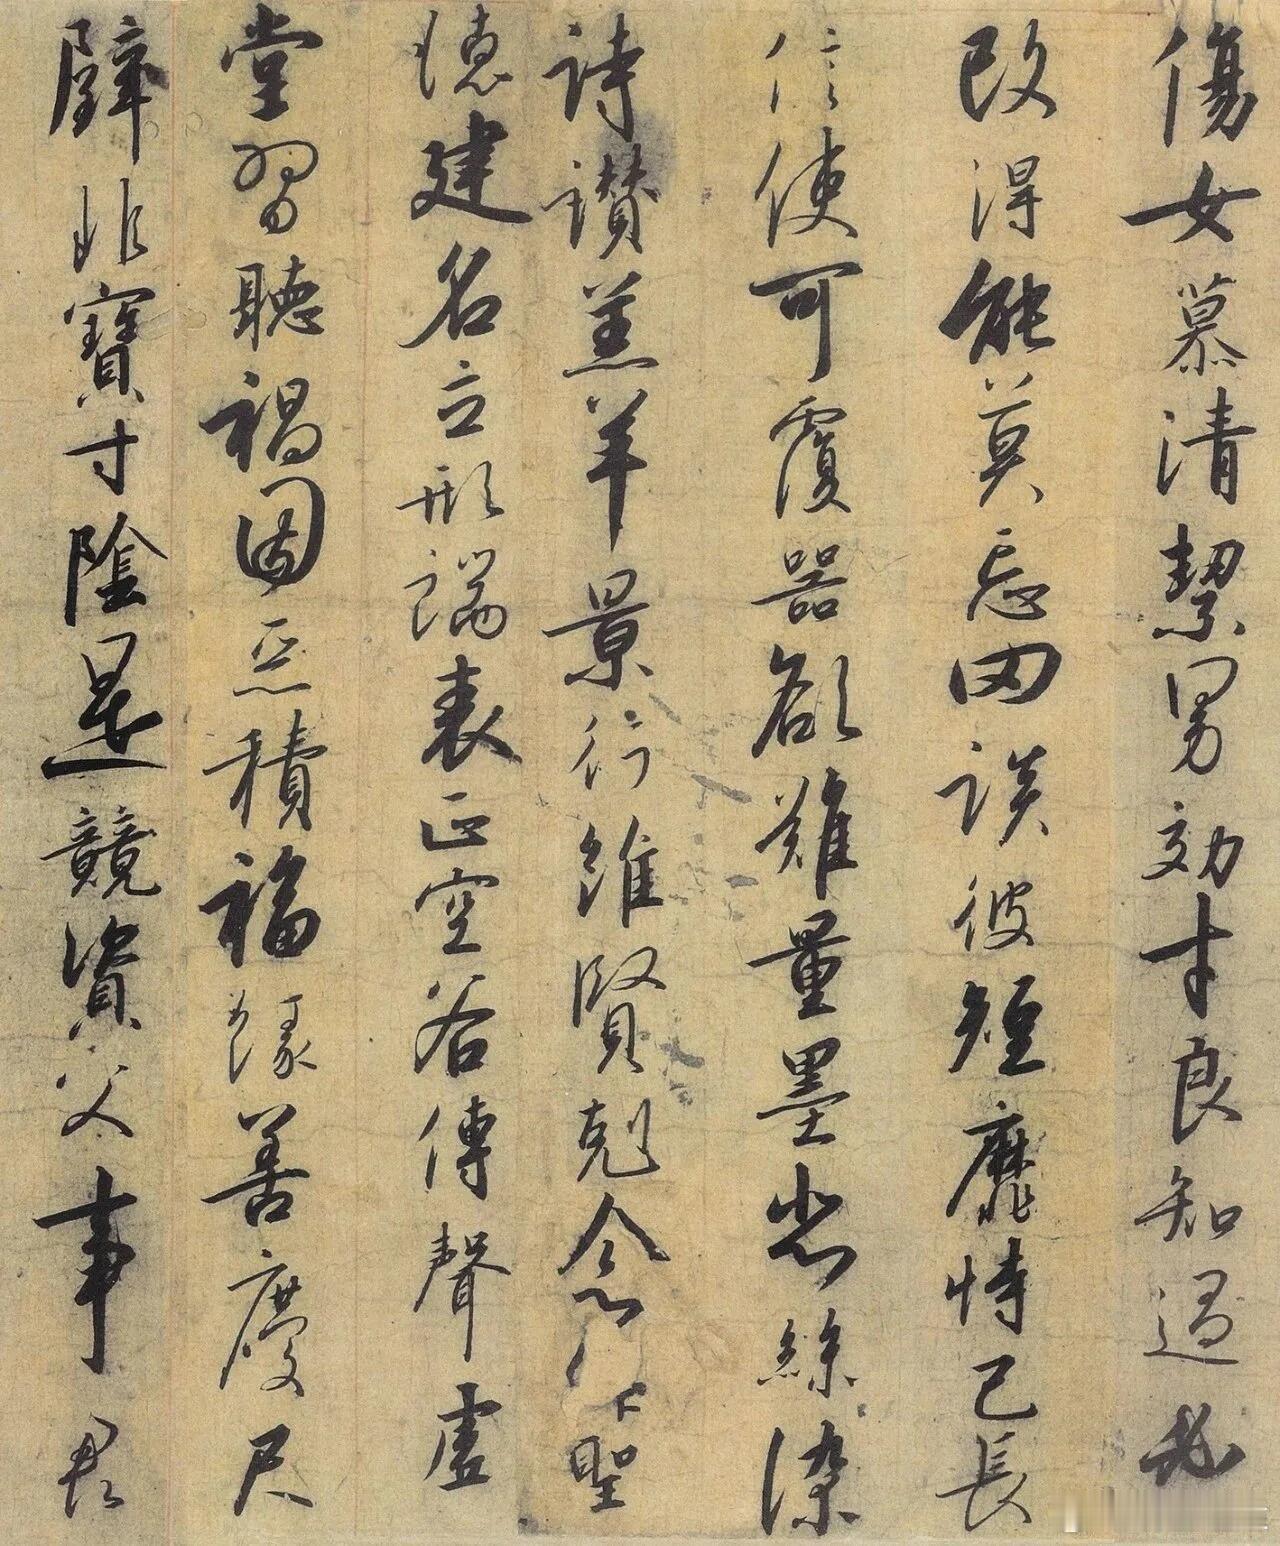 傷女慕清絜男効才良知過必
改得能莫忘罔談彼短靡恃己長
信使可覆器欲難量墨悲絲染
詩讚羔羊景行維賢剋念作聖
德建名立形端表正空谷傳聲虛
堂習聽禍因惡積福緣善慶尺
璧非寶寸陰是競資父事君